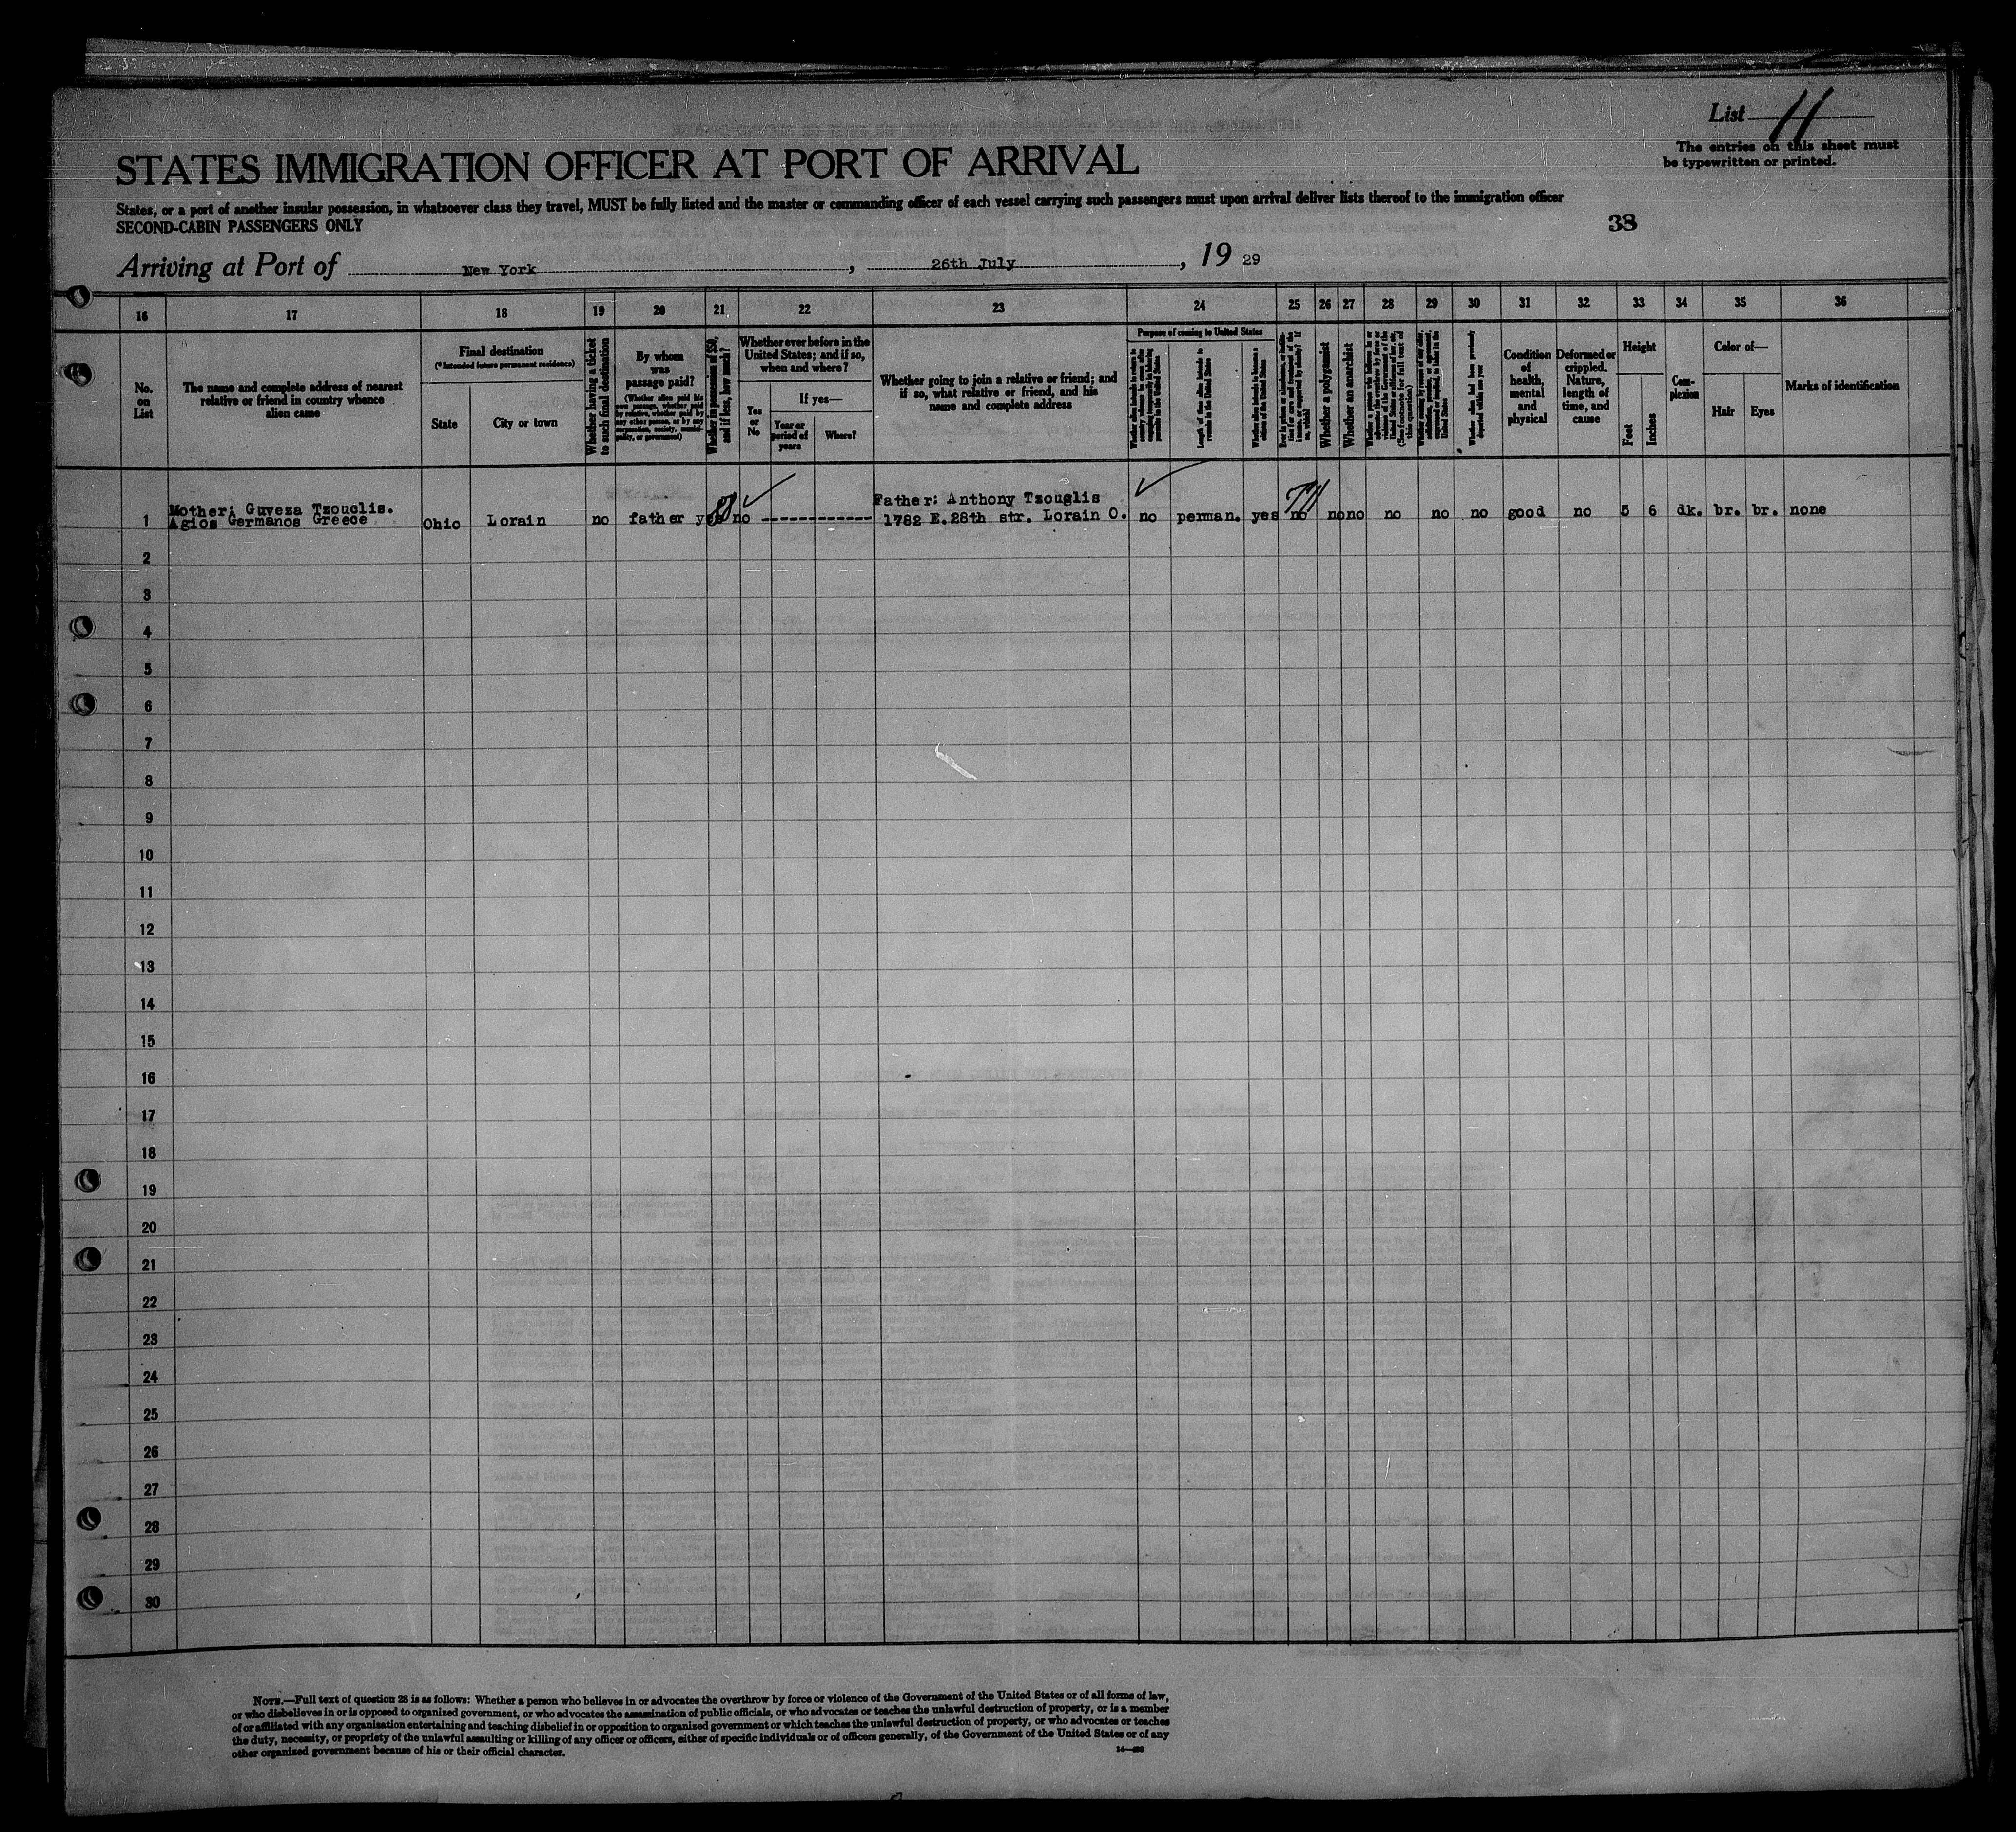 List 11
The entries on this sheet must
be typewritten or printed.
STATES IMMIGRATION OFFICER AT PORT OF ARRIVAL
States, or a port of another insular possession, in whatsoever class they travel, MUST be fully listed and the master or commanding officer of each vessel carrying such passengers must upon arrival deliver lists thereof to the immigration officer
SECOND-CABIN PASSENGERS ONLY
38
Arriving at Port of New York, 26th July, 19 29
16 17 18 19 20 21 22 23 24 25 26 27 28 29 30 31 32 33 34 35 36
No.
on
List
The name and complete address of nearest
relative or friend in country whence
alien came
Final destination
(*Intended future permanent residence)
State
City or town
Whether having a ticket
to such final destination
By whom
was
passage paid?
(Whether alien paid his
own passage, whether paid
by relative, whether paid by
any other person, or by any
corporation, society, munici-
pality, or government)
Whether in possession of $50,
and if less, how much?
Whether ever before in the
United States; and if so,
when and where?
Yes
or
No
If yes—
Year or
period of
years
Where?
Whether going to join a relative or friend; and
if so, what relative or friend, and his
name and complete address
Purpose of coming to United States
Length of time alien intends to
remain in the United States
Whether alien intends to become a
citizen of the United States
Whether a polygamist
Whether an anarchist
Whether alien had been previously
deported within one year
Condition
of
health,
mental
and
physical
Deformed or
crippled.
Nature,
length of
time, and
cause
Height
Feet
Inches
Com-
plexion
Color of—
Hair
Eyes
Marks of identification
Mother: Guveza Tzouglis.
Agios Germanos Greece
Father: Anthony Tzouglis
1 Ohio Lorain no father yes no ------------ 1782 E. 28th str. Lorain O. no perman. yes no no no no no no good no 5 6 dk. br. br. none
2
3
4
5
6
7
8
9
10
11
12
13
14
15
16
17
18
19
20
21
22
23
24
25
26
27
28
29
30
NOTE.—Full text of question 28 is as follows: Whether a person who believes in or advocates the overthrow by force or violence of the Government of the United States or of all forms of law,
or who disbelieves in or is opposed to organized government, or who advocates the assassination of public officials, or who advocates or teaches the unlawful destruction of property, or is a member
of or affiliated with any organization entertaining and teaching disbelief in or opposition to organized government or which teaches the unlawful destruction of property, or who advocates or teaches
the duty, necessity, or propriety of the unlawful assaulting or killing of any officer or officers, either of specific individuals or of officers generally, of the Government of the United States or of any
other organized government because of his or their official character.